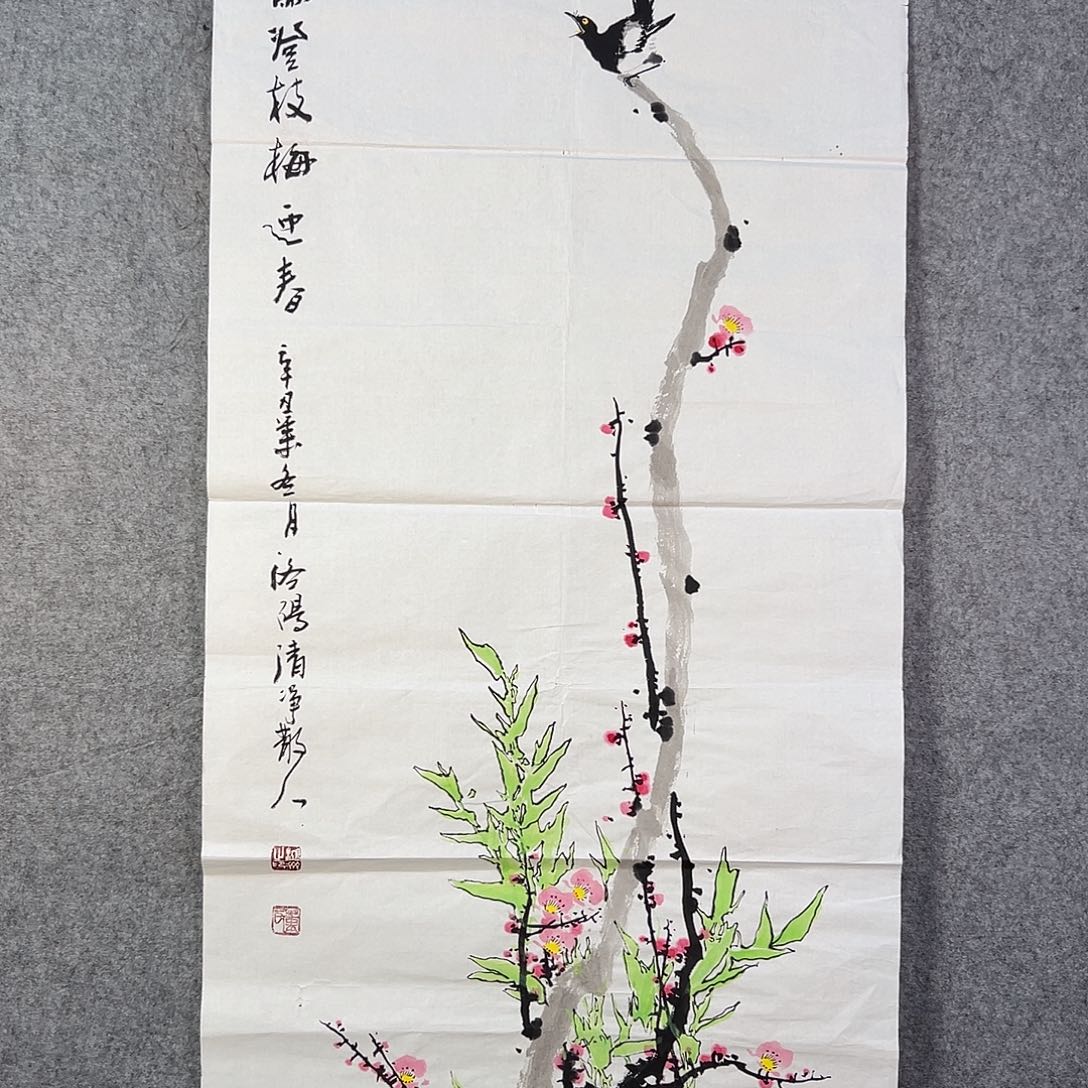 登枝梅迎春
辛丑葉冬月洛陽清净散人